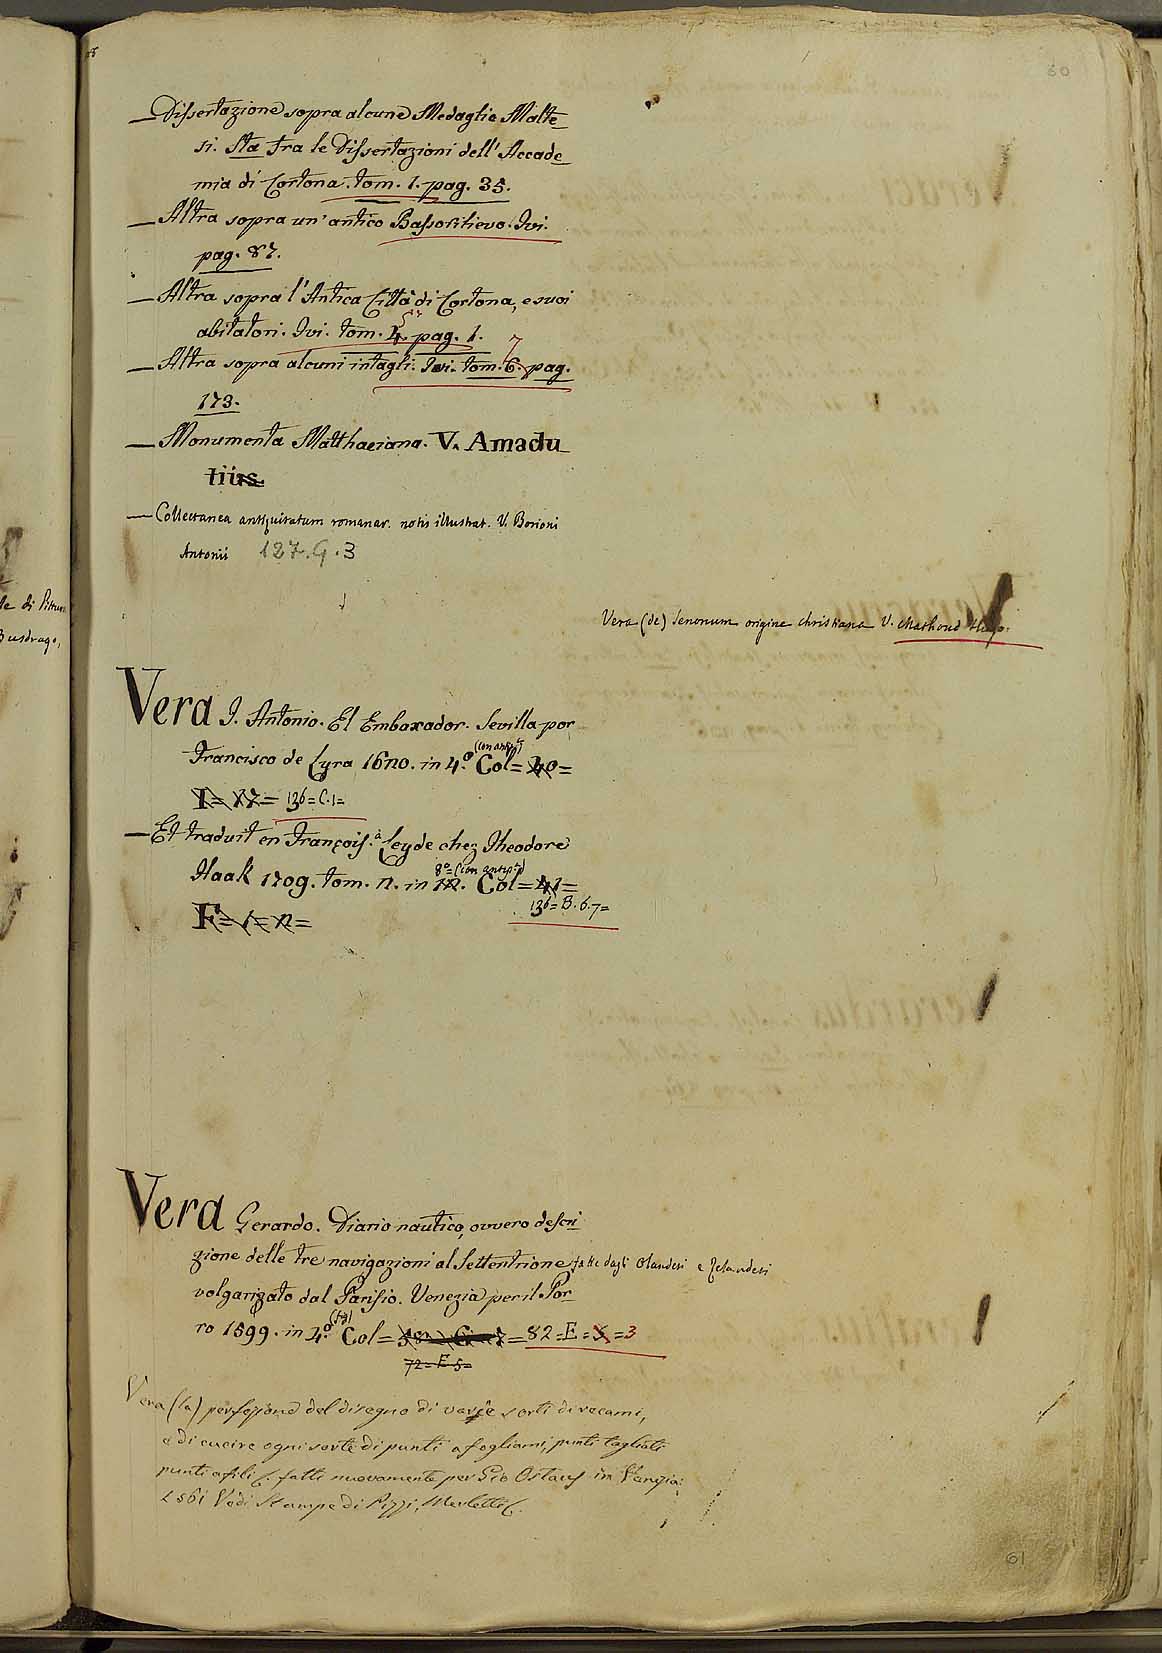 60
— Dissertazione sopra alcune Medaglie Malte_
si. Sta fra le Dissertazioni dell'Accade_
mia di Cortona. tom. 1. pag. 35.
— Altra sopra un'antico Bassorilievo. Ivi.
pag. 87.
— Altra sopra l'Antica Città di Cortona, e suoi
abitatori. Ivi. tom. 4. pag. 1.
— Altra sopra alcuni intagli. Ivi. tom. 6. 7 pag.
173.
— Monumenta Matthaeiana. V. Amadu_
tius.
— Collectanea antiquitatum romanar. notis illustrat. V. Borioni
Antonii 127.G.3
Vera (de) Senonum origine christiana V. Mathoud Hugo.
Vera D. Antonio. El Embaxador. Sevilla por
Francisco de Lyra 1620. in 4.° Col= 40=
I= 27= 136=C.1=
— Et traduit en François. à Leyde chez Theodore
Haak 1709. tom. 2. in 12. 8°= Col= 41=
136=B.6.7=
F= 1= 2=
Vera Gerardo. Diario nautico, ovvero descri_
zione delle tre navigazioni al Settentrione fatte dagli Olandesi e Zelandesi
volgarizato dal Parisio. Venezia per il Por_
ro 1599. in 4.° Col= = 82=E= =3
72=E 5=
Vera (la) perfezione del disegno di varie sorti di recami,
e di cucire ogni sorte di punti a fogliami, punti tagliati
punti a fili &. fatti nuovamente per Gio Ostaus in Venezia
1561 Vedi Stampe di Pizzi, Merletti &.
61